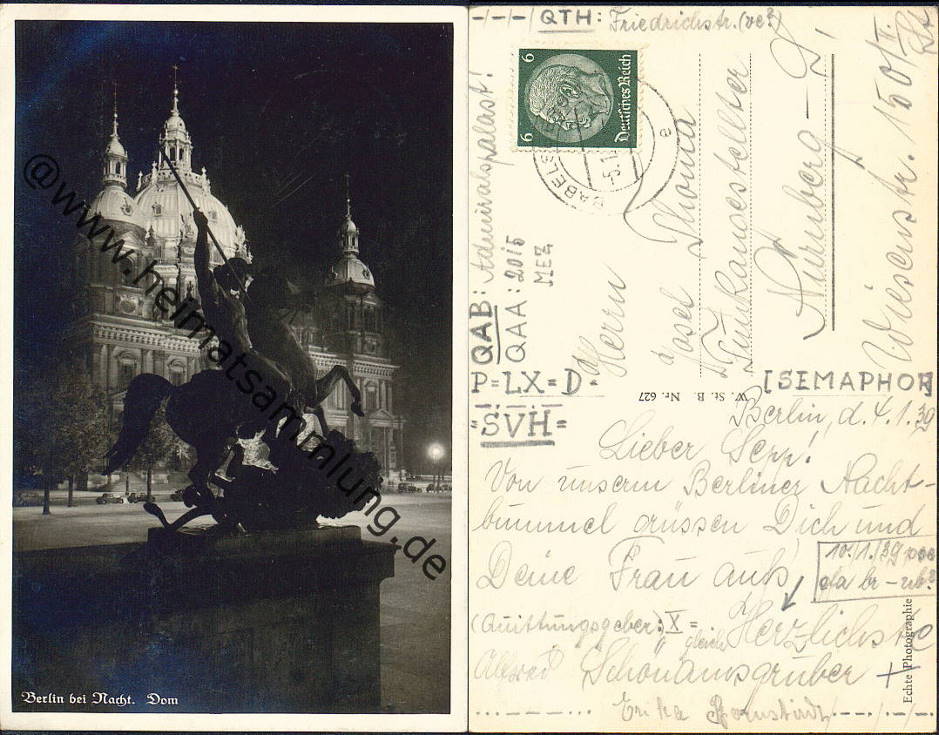 @www.heimatsammlung.de
Berlin bei Nacht. Dom
-/-/-/ QTH: Friedrichstr.
QAB: Admiralspalast!
QAA: 2015
MEZ
P=LX=D.
=SVH=
6 6
Deutsches Reich
BABELS
Herrn
Josef Thoma
Funkangestellter
Nürnberg - S,
Wiesenstr. 150/II
W. St. B. Nr. 627
[SEMAPHOR]
Berlin, d. 4.1.39
Lieber Sepp!
Von unserm Berliner Nacht-
bummel grüssen Dich und
Deine Frau aufs
10./1./39
(Quittungsgeber: X =
gleich
Herzlichste
Schönamsgruber +
Erika
Echte Photographie